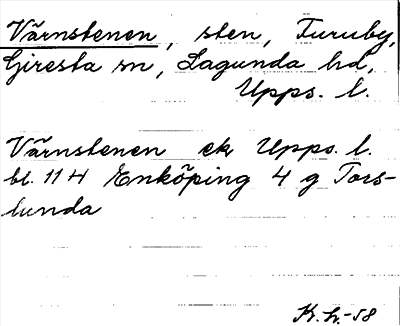 Värnstenen, sten, Furuby,
Giresta sn, Lagunda hd,
Upps. l.
Värnstenen ek Upps. l.
bl. 114 Enköping 4 g Tors-
lunda
K.L.-58